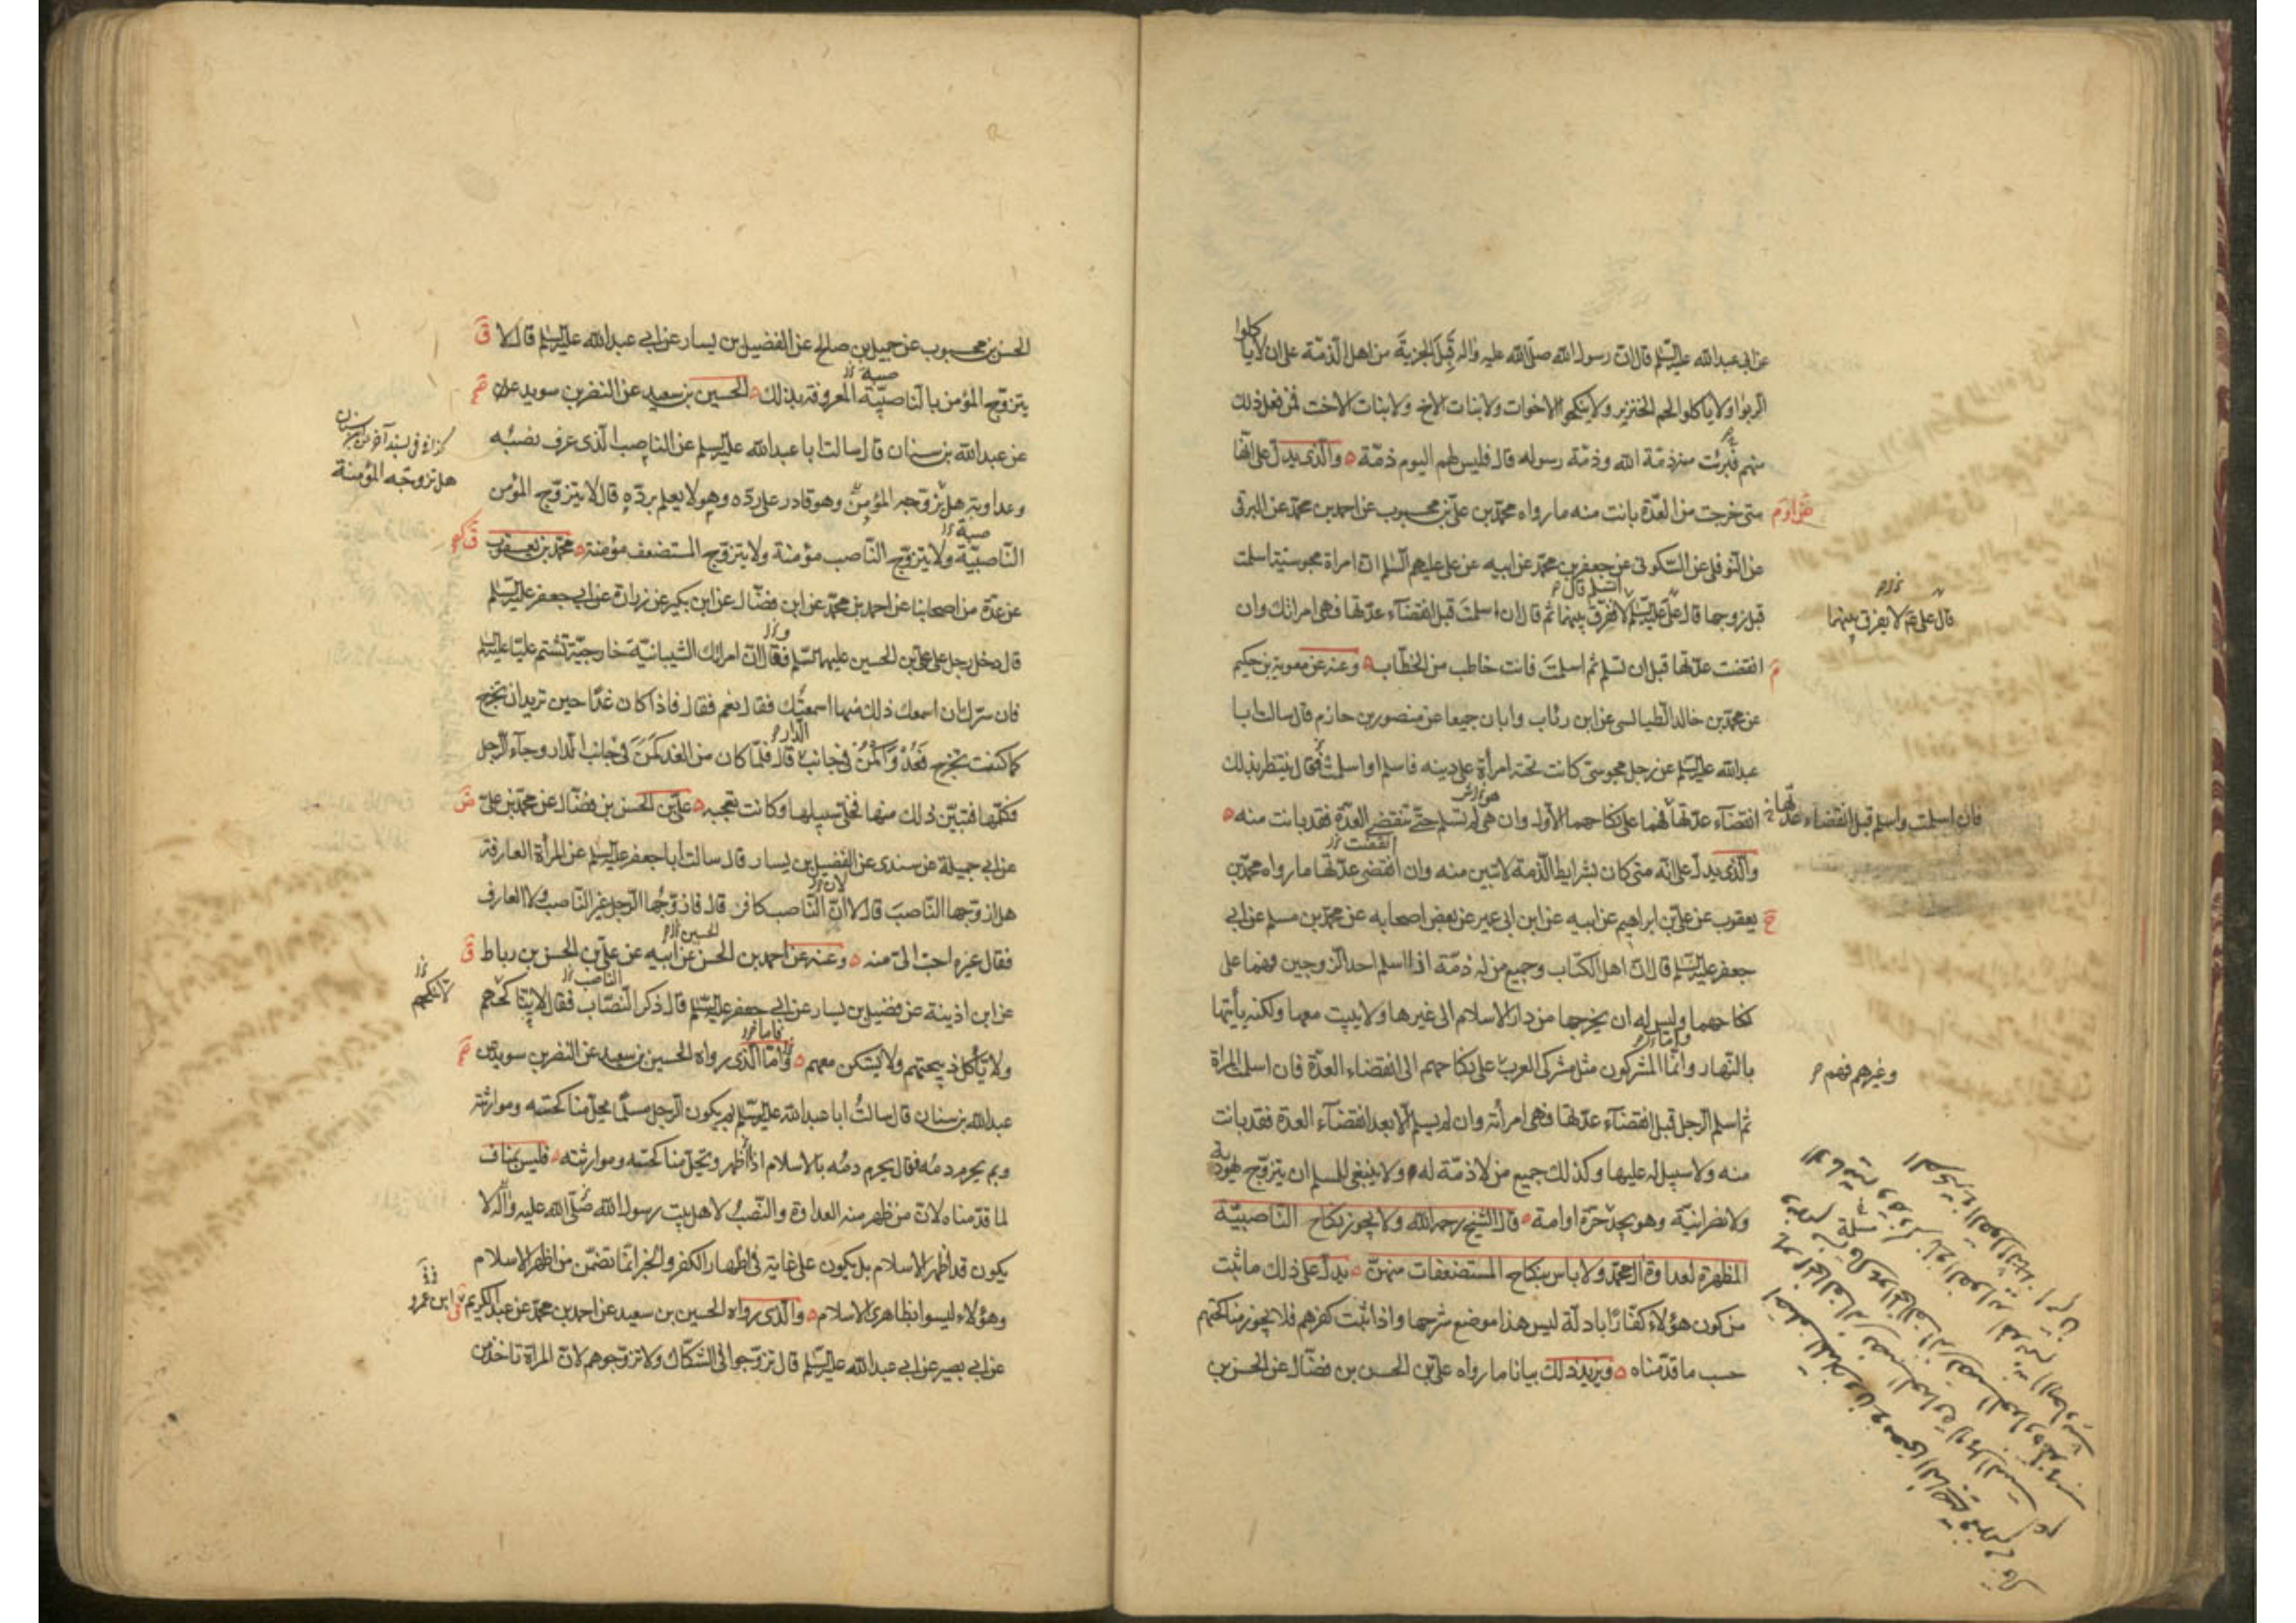 عن ابي عبدالله عليه السلم قال ان رسول الله صلى الله عليه واله قبل الجزية من اهل الذمة على ان لا ياكلوا
الربوا ولا ياكلوا لحم الخنزير ولا ينكحوا الاخوات ولا بنات الاخ ولا بنات الاخت فمن فعل ذلك
منهم فبرئت منه ذمة الله وذمة رسوله قال فليس لهم اليوم ذمة والذى يدل على انها
متى خرجت من العدة بانت منه ما رواه محمد بن على بن محبوب عن احمد بن محمد عن البرقى
عن النوفلى عن السكونى عن جعفر بن محمد عن ابيه عن على عليهم السلم ان امراة مجوسية اسلمت
قبل زوجها قال على عليه السلم لا يفرق بينهما ثم قال ان اسلمت قبل انقضاء عدتها فهى امراتك وان
قال على ع لا يفرق بينهما
انقضت عدتها قبل ان تسلم ثم اسلمت فانت خاطب من الخطاب وعنه عن معوية بن حكيم
عن محمد بن خالد الطيالسى عن ابن رئاب وابان جميعا عن منصور بن حازم قال سالت ابا
عبدالله عليه السلم عن رجل مجوسى كانت تحته امرأة على دينه فاسلم او اسلمت فقال ينتظر بذلك
انقضاء عدتها فهما على نكاحهما الاول وان هى لم تسلم حتى تنقضى العدة فقد بانت منه
فان اسلمت واسلم قبل انقضاء عدتها
والذى يدل على انه متى كان بشرايط الذمة لا تبين منه وان انقضى عدتها ما رواه محمد بن
يعقوب عن على بن ابراهيم عن ابيه عن ابن ابى عمير عن بعض اصحابه عن محمد بن مسلم عن ابى
جعفر عليه السلم قال ان اهل الكتاب وجميع من له ذمة اذا اسلم احد الزوجين فهما على
نكاحهما وليس له ان يخرجها من دار الاسلام الى غيرها ولا يبيت معها ولكنه يأتيها
بالنهار واما المشركون مثل مشركى العرب على نكاحهم الى انقضاء العدة فان اسلمت المراة
وغيرهم فهم
ثم اسلم الرجل قبل انقضاء عدتها فهى امرأته وان لم يسلم الا بعد انقضاء العدة فقد بانت
منه ولا سبيل له عليها وكذلك جميع من لا ذمة له ولا ينبغى للمسلم ان يتزوج يهودية
ولا نصرانية وهو يجد حرة او امة قال الشيخ رحمه الله ولا يجوز نكاح الناصبية
المظهرة لعداوة آل محمد ولا باس بنكاح المستضعفات منهن يدل على ذلك ما ثبت
من كون هؤلاء كفارا بادلة ليس هذا موضع شرحها واذا ثبت كفرهم فلا يجوز مناكحتهم
حسب ما قدمناه ويزيد ذلك بيانا ما رواه على بن الحسن بن فضال عن الحسن بن
الحسن بن محبوب عن جميل بن صالح عن الفضيل بن يسار عن ابى عبدالله عليه السلم قال لا
يتزوج المؤمن بالناصبية المعروفة بذلك الحسين بن سعيد عن النضر بن سويد
عن عبدالله بن سنان قال سالت ابا عبدالله عليه السلم عن الناصب الذى عرف نصبه
وعداوته هل يزوجه المؤمن وهو قادر على رده وهو لا يعلم برده قال لا يتزوج المؤمن
هل تزوجه المؤمنة
الناصبية ولا يتزوج الناصب مؤمنة ولا يتزوج المستضعف مؤمنة محمد بن يعقوب
عن عدة من اصحابنا عن احمد بن محمد عن ابن فضال عن ابن بكير عن زرارة عن ابى جعفر عليه السلم
قال دخل رجل على على بن الحسين عليهما السلم فقال ان امراتك الشيبانية خارجية تشتم عليا عليه السلم
فان سرك ان اسمعك ذلك منها اسمعتك فقال نعم فقال فاذا كان غدا حين تريد ان تخرج
كما كنت تخرج فعد واكمن فى جانب الدار قال فلما كان من الغد كمن فى جانب الدار وجاء الرجل
فكلمها فتبين ذلك منها فخلى سبيلها وكانت تعجبه على بن الحسن بن فضال عن محمد بن على
عن ابى جميلة عن سندى عن الفضيل بن يسار قال سالت ابا جعفر عليه السلم عن المرأة العارفة
هل ازوجها الناصب قال لا ان الناصب كافر قال فازوجها الرجل غير الناصب ولا العارف
فقال غيره احب الى منه وعنه عن احمد بن الحسن عن ابيه عن على بن الحسن بن رباط
عن ابن اذينة عن فضيل بن يسار عن ابى جعفر عليه السلم قال ذكر النصاب فقال لا تناكحهم
ولا تأكل ذبيحتهم ولا تسكن معهم واما الذى رواه الحسين بن سعيد عن النضر بن سويد عن
عبدالله بن سنان قال سالت ابا عبدالله عليه السلم بم يكون الرجل مسلما يحل مناكحته وموارثته
وبم يحرم دمه فقال يحرم دمه بالاسلام اذا أظهر ويحل مناكحته وموارثته فليس بمناف
لما قدمناه لان من ظهر منه العداوة والنصب لاهل بيت رسول الله صلى الله عليه وآله لا
يكون قد اظهر الاسلام بل يكون على غاية فى اظهار الكفر والخبر انما تضمن من اظهر الاسلام
وهؤلاء ليسوا بظاهرى الاسلام والذى رواه الحسين بن سعيد عن احمد بن محمد عن عبد الكريم
ابن عمرو
عن ابى بصير عن ابى عبدالله عليه السلم قال تزوجوا فى الشكاك ولا تزوجوهم لان المراة تاخذ من